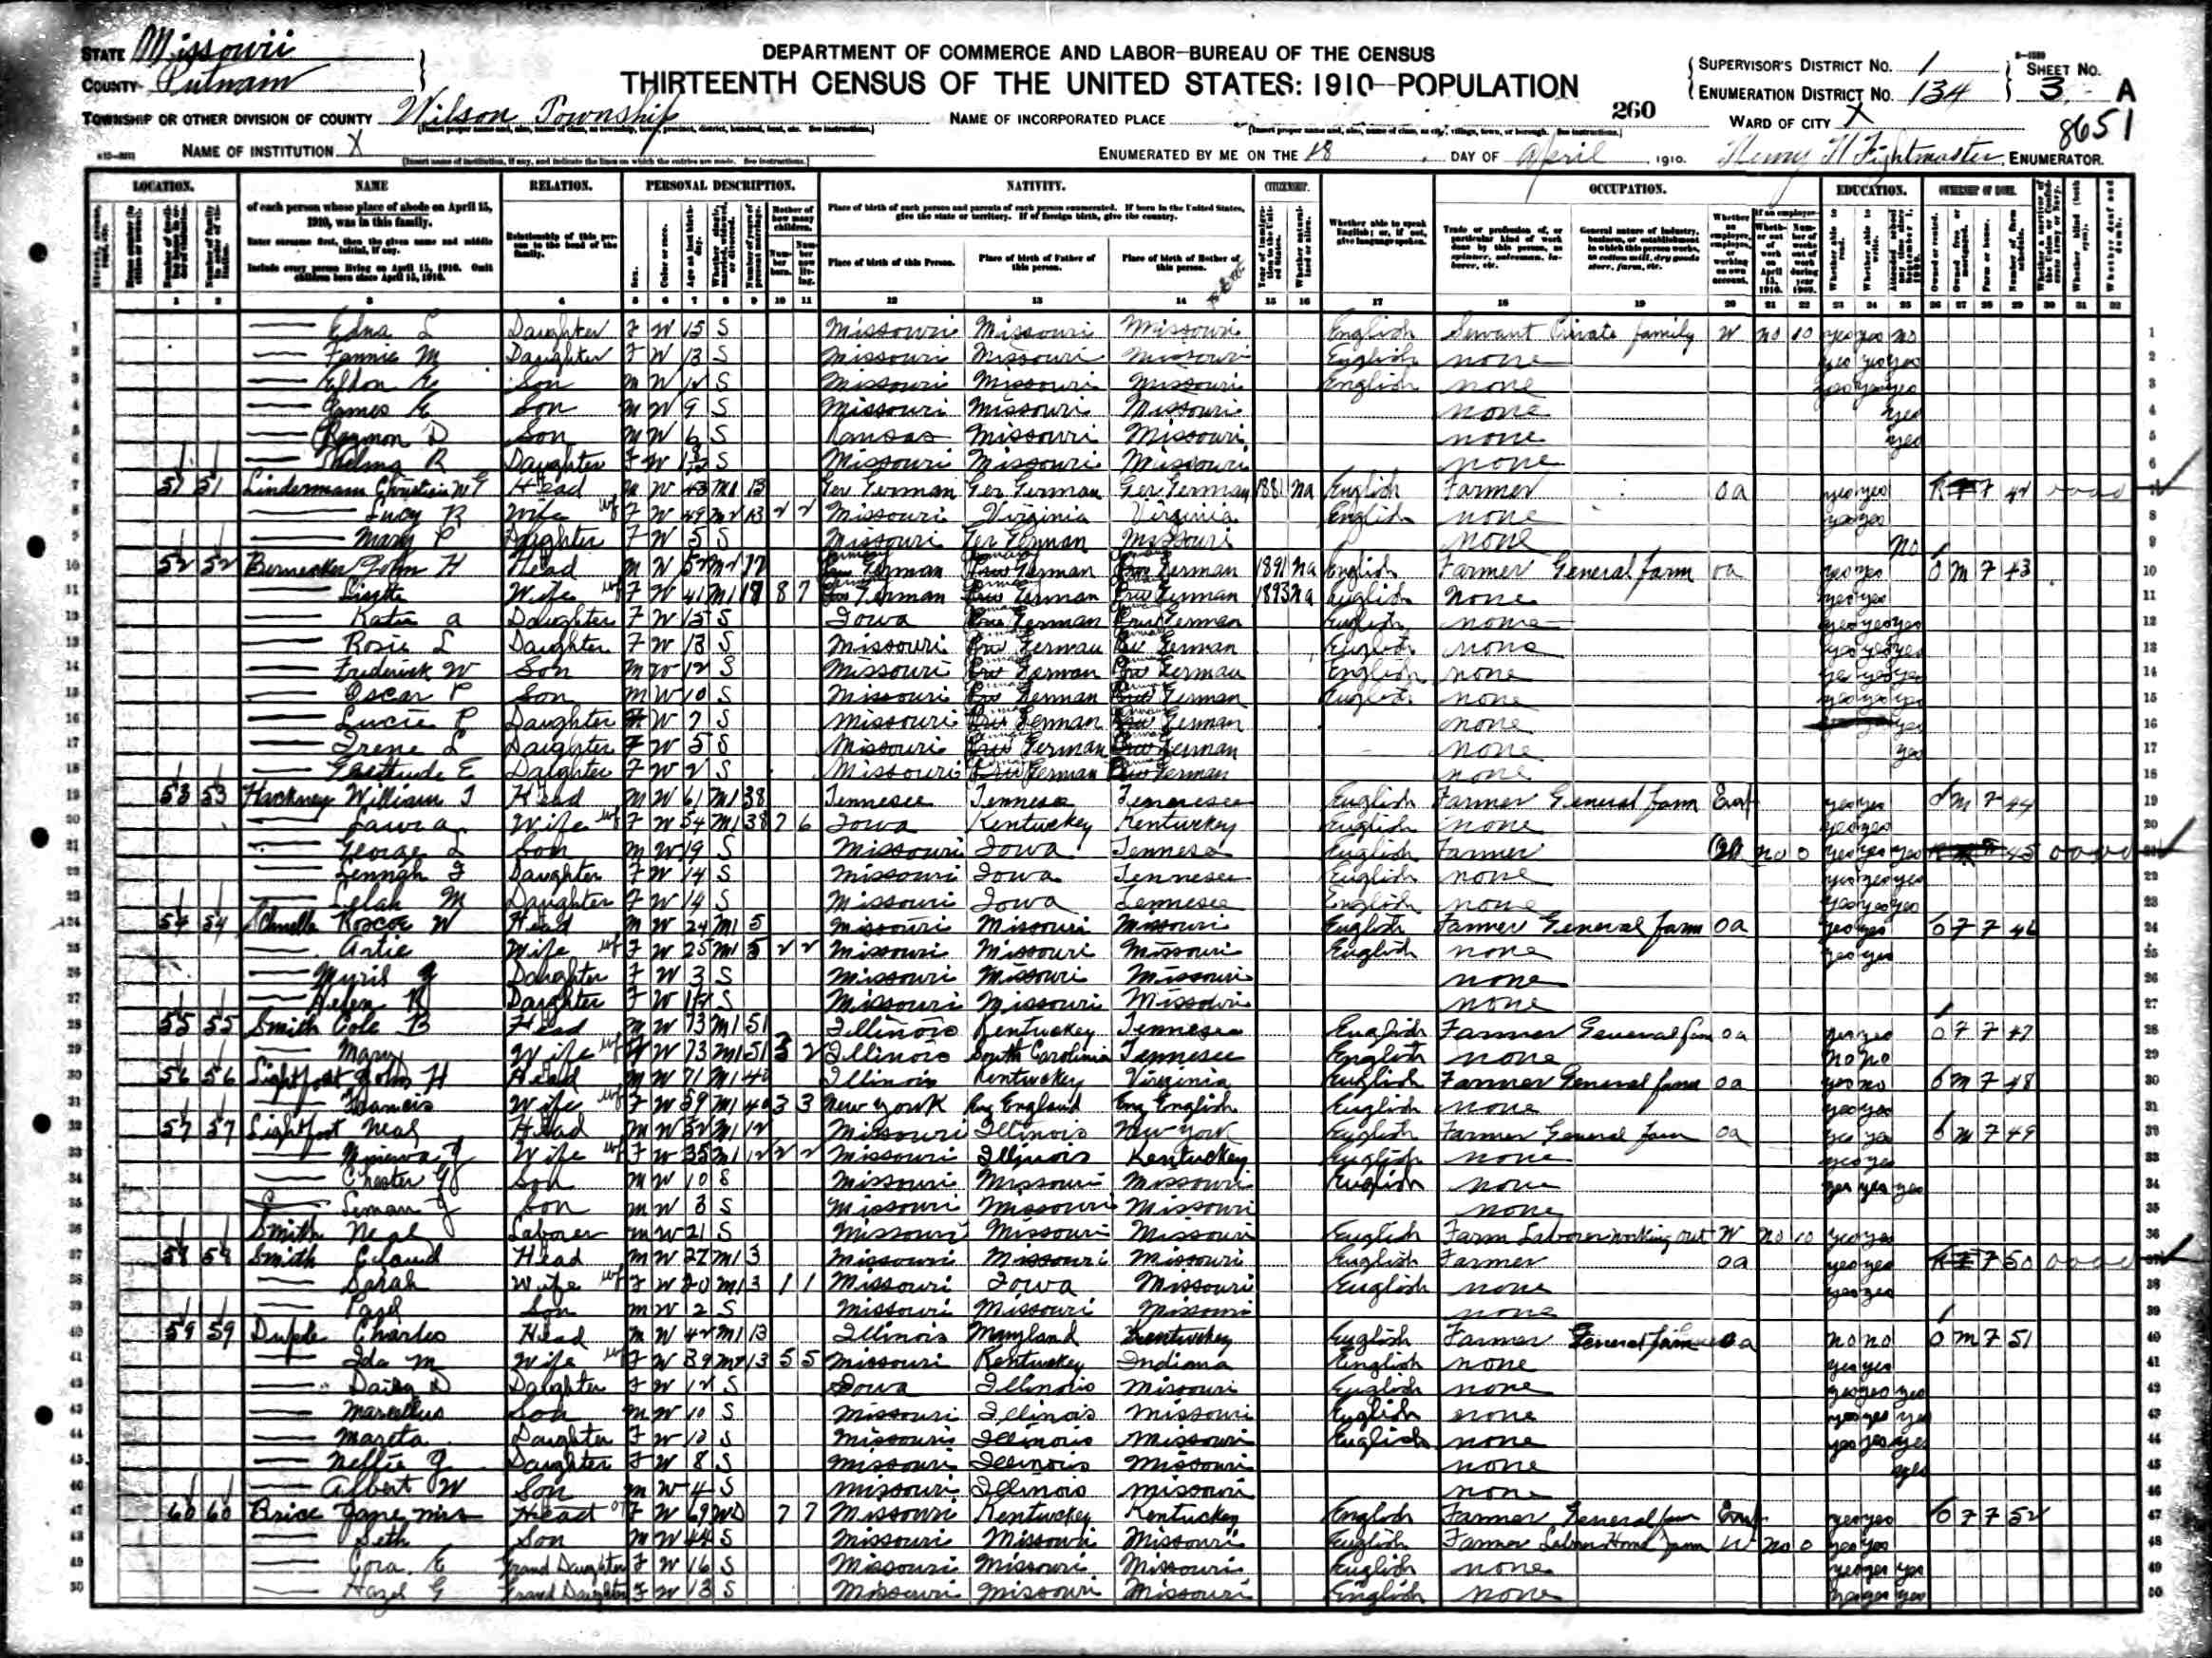 STATE Missouri
COUNTY Putnam
DEPARTMENT OF COMMERCE AND LABOR—BUREAU OF THE CENSUS
THIRTEENTH CENSUS OF THE UNITED STATES: 1910—POPULATION
SUPERVISOR'S DISTRICT No. 1
ENUMERATION DISTRICT No. 134
SHEET No. 3 A
8651
TOWNSHIP OR OTHER DIVISION OF COUNTY Wilson Township
NAME OF INCORPORATED PLACE
260
WARD OF CITY X
NAME OF INSTITUTION X
ENUMERATED BY ME ON THE 18 DAY OF April, 1910. Henry H Fightmaster, ENUMERATOR.
LOCATION. NAME RELATION. PERSONAL DESCRIPTION. NATIVITY. CITIZENSHIP. OCCUPATION. EDUCATION. OWNERSHIP OF HOME.
of each person whose place of abode on April 15, 1910, was in this family.
Enter surname first, then the given name and middle initial, if any.
Include every person living on April 15, 1910. Omit children born since April 15, 1910.
Relationship of this person to the head of the family.
Place of birth of this Person. Place of birth of Father of this person. Place of birth of Mother of this person.
1 Edna L Daughter F W 15 S Missouri Missouri Missouri English Servant Private family W no 10 yes yes no
2 Fannie M Daughter F W 13 S Missouri Missouri Missouri English none yes yes yes
3 Eldon E Son M W 12 S Missouri Missouri Missouri English none yes yes yes
4 James E Son M W 9 S Missouri Missouri Missouri none yes
5 Raymon D Son M W 6 S Kansas Missouri Missouri none yes
6 Thelma R Daughter F W S Missouri Missouri Missouri none
7 51 51 Lindermann Christian W G Head M W 43 M1 13 Ger German Ger German Ger German 1881 na English Farmer oa yes yes R F 42
8 Lucy R Wife F W 49 M2 13 2 2 Missouri Virginia Virginia English none yes yes
9 Mary P Daughter F W 5 S Missouri Ger German Missouri none no
10 52 52 Bernecker John H Head M W 52 M2 17 German German German 1891 na English Farmer General farm oa yes yes O M F 43
11 Wife F W 41 M1 17 8 7 German German German 1893 na English None yes yes
12 Katie A Daughter F W 15 S Iowa German German English none yes yes yes
13 Rosie L Daughter F W 13 S Missouri German German English none yes yes yes
14 Frederick W Son M W 12 S Missouri German German English none yes yes yes
15 Oscar P Son M W 10 S Missouri German German English none yes yes yes
16 Lucie P Daughter F W 7 S Missouri German German none yes
17 Irene L Daughter F W 5 S Missouri German German none yes
18 Gertrude E Daughter F W 2 S Missouri German German none
19 53 53 Hackney William T Head M W 61 M1 38 Tennesee Tennesee Tennesee English Farmer General farm Emp yes yes O M F 44
20 Laura Wife F W 54 M1 38 7 6 Iowa Kentuckey Kentuckey English none yes yes
21 George L Son M W 19 S Missouri Iowa Tennesee English Farmer oa no 0 yes yes yes 45
22 F Daughter F W 14 S Missouri Iowa Tennesee English none yes yes yes
23 Lelah M Daughter F W 14 S Missouri Iowa Tennesee English none yes yes yes
24 54 54 Roscoe W Head M W 24 M1 5 Missouri Missouri Missouri English Farmer General farm oa yes yes O F F 46
25 Artie Wife F W 25 M1 5 2 2 Missouri Missouri Missouri English none yes yes
26 Daughter F W 3 S Missouri Missouri Missouri none
27 Helen R Daughter F W S Missouri Missouri Missouri none
28 55 55 Smith Cole B Head M W 73 M1 51 Illinois Kentuckey Tennesee English Farmer General farm oa yes yes O F F 47
29 Mary Wife F W 73 M1 51 3 2 Illinois South Carolinia Tennesee English none no no
30 56 56 Lightfoot John H Head M W 71 M1 40 Illinois Kentuckey Virginia English Farmer General farm oa yes no O M F 48
31 Francis Wife F W 59 M1 40 3 3 New York Eng England Eng English English none yes yes
32 57 57 Lightfoot Neal Head M W 32 M1 12 Missouri Illinois New York English Farmer General farm oa yes yes O M F 49
33 Minerva J Wife F W 35 M1 12 2 2 Missouri Illinois Kentuckey English none yes yes
34 Chester Son M W 10 S Missouri Missouri Missouri English none yes yes yes
35 Leman J Son M W 3 S Missouri Missouri Missouri none
36 Smith Neal Laborer M W 21 S Missouri Missouri Missouri English Farm Laborer Working out W no 10 yes yes
37 58 58 Smith Claud Head M W 27 M1 3 Missouri Missouri Missouri English Farmer oa yes yes R F 50
38 Sarah Wife F W 20 M1 3 1 1 Missouri Iowa Missouri English none yes yes
39 Son M W 2 S Missouri Missouri Missouri none
40 59 59 Charles Head M W 42 M1 13 Illinois Maryland Kentuckey English Farmer General farm oa no no O M F 51
41 Ida M Wife F W 39 M2 13 5 5 Missouri Kentuckey Indiana English none yes yes
42 Daisy D Daughter F W 12 S Iowa Illinois Missouri English none yes yes yes
43 Marcellus Son M W 10 S Missouri Illinois Missouri English none yes yes yes
44 Mareta Daughter F W 10 S Missouri Illinois Missouri English none yes yes yes
45 Nellie J Daughter F W 8 S Missouri Illinois Missouri none yes
46 Albert W Son M W 4 S Missouri Illinois Missouri none
47 60 60 Brice Jane Mrs Head F W 69 Wd 7 7 Missouri Kentuckey Kentuckey English Farmer General farm Emp yes yes O F F 52
48 Seth Son M W 44 S Missouri Missouri Missouri English Farmer Labor Home farm W no 0 yes yes
49 Cora E Grand Daughter F W 16 S Missouri Missouri Missouri English none yes yes yes
50 Hazel G Grand Daughter F W 13 S Missouri Missouri Missouri English none yes yes yes